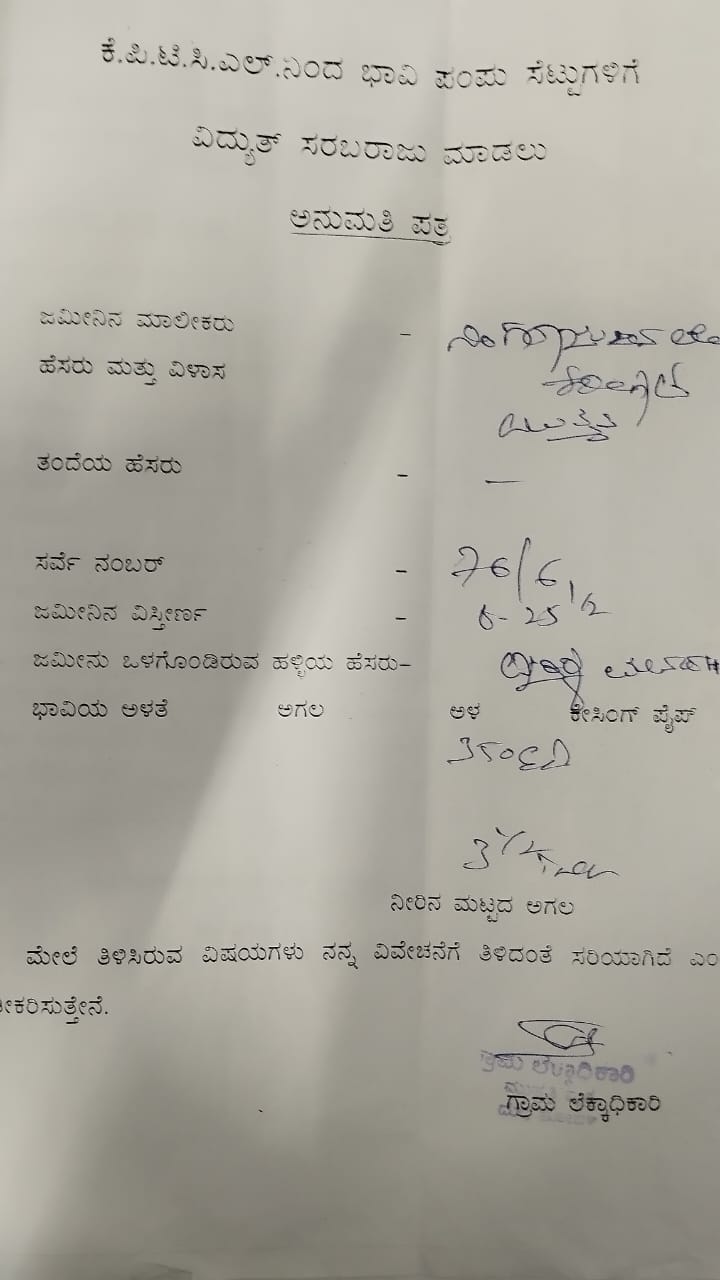 ಕೆ.ಪಿ.ಟಿ.ಸಿ.ಎಲ್.ನಿಂದ ಭಾವಿ ಪಂಪು ಸೆಟ್ಟುಗಳಿಗೆ
ವಿದ್ಯುತ್ ಸರಬರಾಜು ಮಾಡಲು
ಅನುಮತಿ ಪತ್ರ
ಜಮೀನಿನ ಮಾಲೀಕರು -
ಹೆಸರು ಮತ್ತು ವಿಳಾಸ
ತಂದೆಯ ಹೆಸರು - —
ಸರ್ವೆ ನಂಬರ್ - 76/6
ಜಮೀನಿನ ವಿಸ್ತೀರ್ಣ - 6-25 1/2
ಜಮೀನು ಒಳಗೊಂಡಿರುವ ಹಳ್ಳಿಯ ಹೆಸರು-
ಭಾವಿಯ ಅಳತೆ ಅಗಲ ಅಳ ಕೇಸಿಂಗ್ ಪೈಪ್
350
ನೀರಿನ ಮಟ್ಟದ ಅಗಲ
ಮೇಲೆ ತಿಳಿಸಿರುವ ವಿಷಯಗಳು ನನ್ನ ವಿವೇಚನೆಗೆ ತಿಳಿದಂತೆ ಸರಿಯಾಗಿದೆ ಎಂ
ೀಕರಿಸುತ್ತೇನೆ.
ಗ್ರಾಮ ಲೆಕ್ಕಾಧಿಕಾರಿ